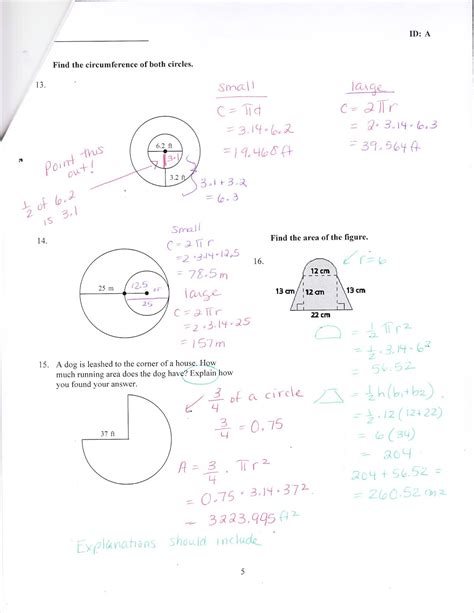 ID: A
Find the circumference of both circles.
13.
small
C = πd
= 3.14·6.2
= 19.468 ft
large
C = 2πr
= 2·3.14·6.3
= 39.564 ft
6.2 ft
3.1
3.2 ft
Point this
out!
1/2 of 6.2
is 3.1
3.1 + 3.2
= 6.3
14.
small
C = 2πr
= 2·3.14·12.5
= 78.5 m
large
C = 2πr
= 2·3.14·25
= 157 m
25 m
12.5
25
Find the area of the figure.
16.
r = 6
12 cm
13 cm
12 cm
13 cm
22 cm
= 1/2 πr²
= 1/2 · 3.14 · 6²
= 56.52
= 1/2 h(b₁+b₂)
= 1/2 · 12 (12+22)
= 6 (34)
= 204
204 + 56.52 =
= 260.52 cm²
15. A dog is leashed to the corner of a house. How
much running area does the dog have? Explain how
you found your answer.
37 ft
3/4 of a circle
3/4 = 0.75
A = 3/4 · πr²
= 0.75 · 3.14 · 37²
= 3223.995 ft²
Explanations should include
5